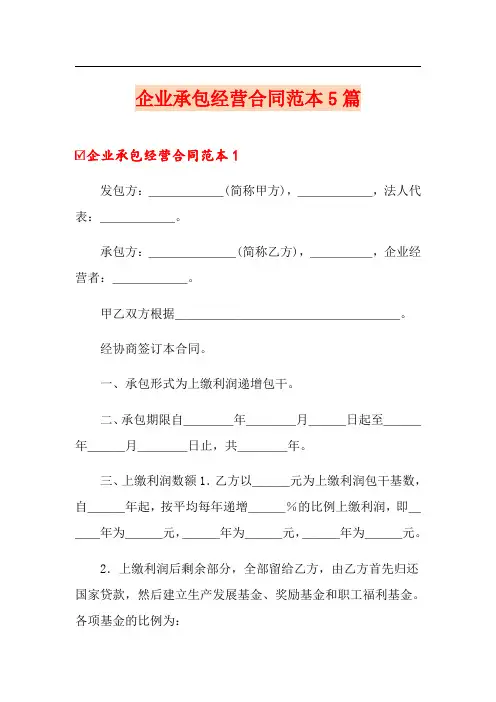 企业承包经营合同范本5篇
☑企业承包经营合同范本1
发包方：____________(简称甲方)，____________，法人代
表：____________。
承包方：______________(简称乙方)，__________，企业经
营者：____________。
甲乙双方根据____________________________________。
经协商签订本合同。
一、承包形式为上缴利润递增包干。
二、承包期限自________年________月______日起至______
年______月________日止，共________年。
三、上缴利润数额1．乙方以______元为上缴利润包干基数，
自______年起，按平均每年递增______％的比例上缴利润，即__
____年为______元，______年为______元，______年为______元。
2．上缴利润后剩余部分，全部留给乙方，由乙方首先归还
国家贷款，然后建立生产发展基金、奖励基金和职工福利基金。
各项基金的比例为：